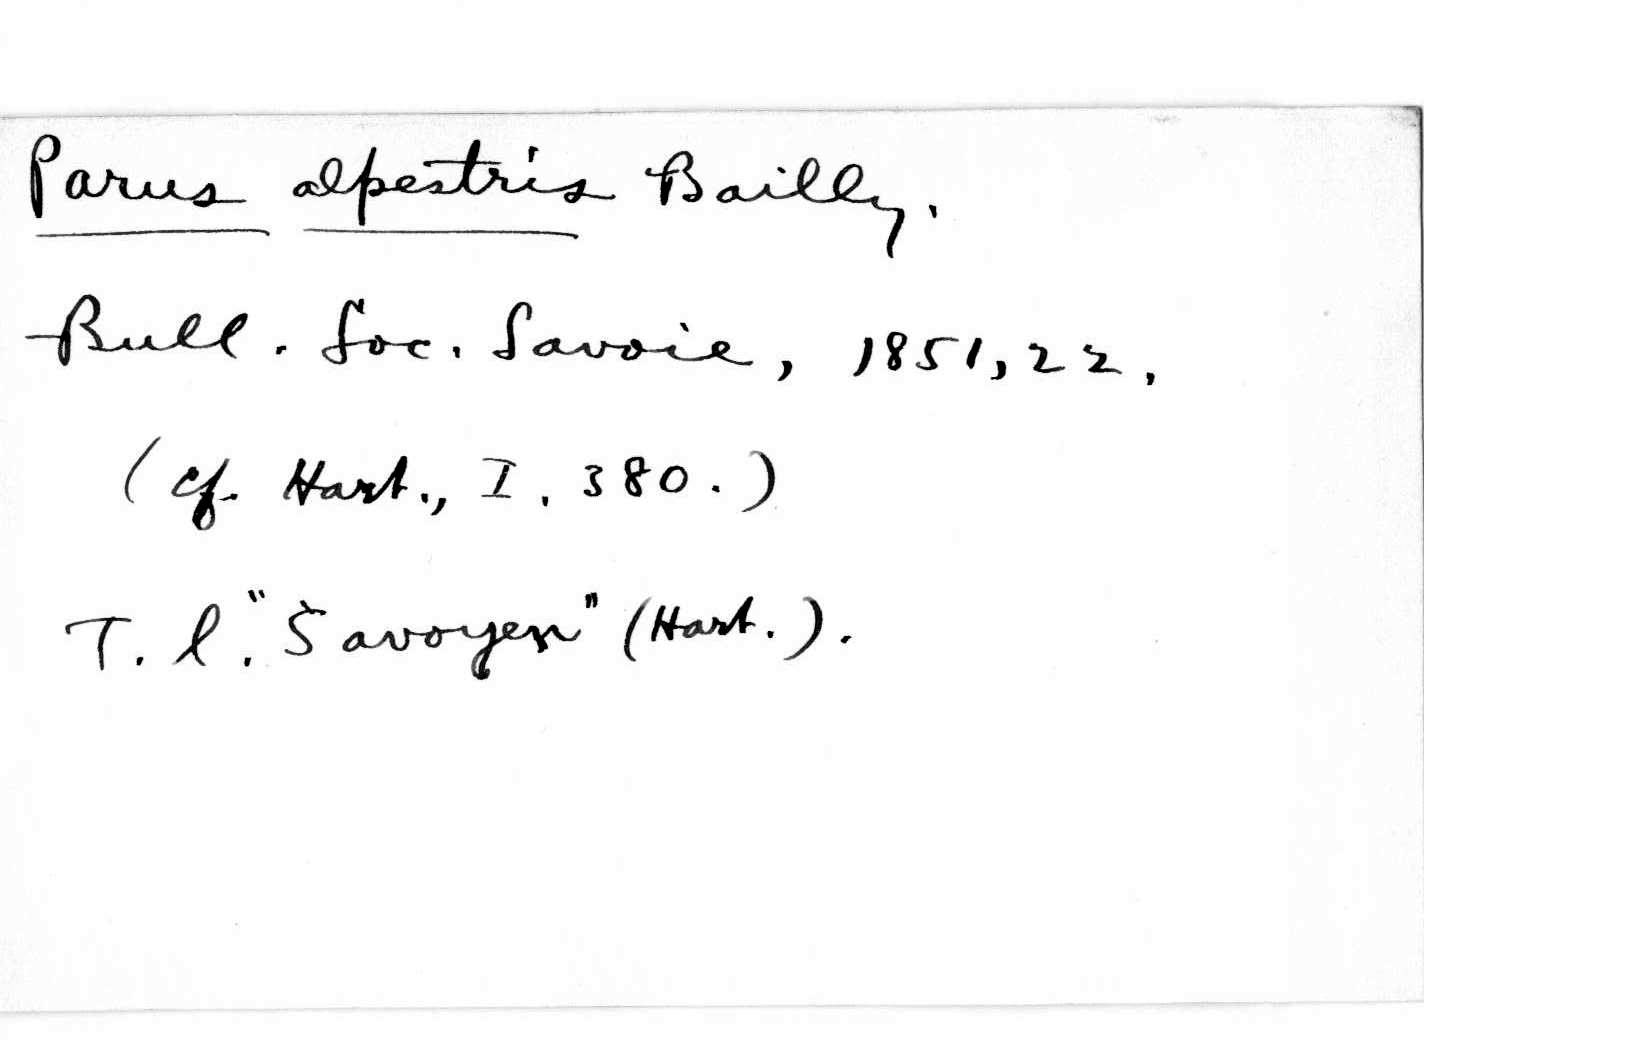 Parus alpestris Bailly.
Bull. Soc. Savoie, 1851, 22.
(cf. Hart., I, 380.)
T. l. "Savoyen" (Hart.).